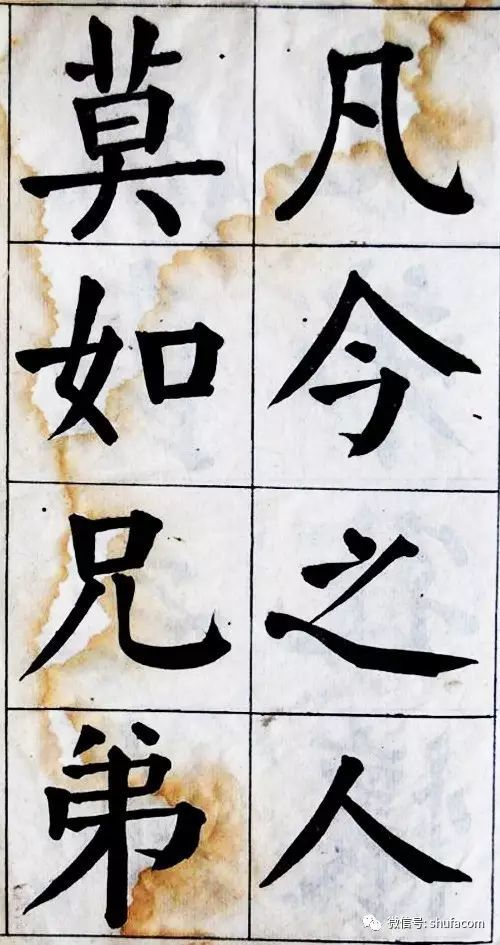 凡今之人
莫如兄弟
微信号: shufacom